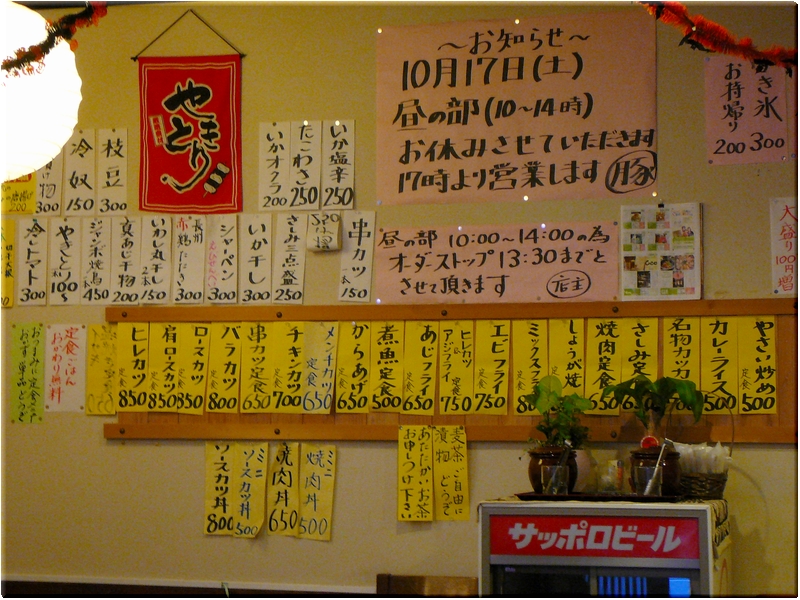 やきとり
〜お知らせ〜
10月17日(土)
昼の部(10〜14時)
お休みさせていただきます
17時より営業します 豚
き氷
お持帰り
200 300
いか塩辛 250
たこわさ 250
いかオクラ 200
枝豆 300
冷奴 150
物 300
昼の部 10:00〜14:00の為
オーダーストップ13:30までと
させて頂きます 店主
大盛り100円増
串カツ 一本 150
さしみ三点盛 250
いか干し 300
シャーペン 300
長州赤鶏たたき 300
いわし丸干し 2本 150
真あじ干物 200
ジャンボ焼鳥 450
やきとり 一本 100〜
冷しトマト 300
やさい炒め 定食 500
カレーライス 500
名物カツカレー 700
さしみ定食 650
焼肉定食 650
しょうが焼
ミックスフライ
エビフライ 定食 750
ヒレカツ アジフライ 定食 750
あじフライ 定食 650
煮魚定食 500
からあげ 定食 650
メンチカツ 定食 650
チキンカツ 定食 700
串カツ定食 650
バラカツ 定食 800
ロースカツ 定食 850
肩ロースカツ 定食 850
ヒレカツ 定食 850
定食ごはん
おかわり無料
おつまみに定食のおかず単品どうぞ
麦茶 ご自由に
漬物 どうぞ
あたたかいお茶
お申しつけ下さい
ミニ焼肉丼 500
焼肉丼 650
ミニソースカツ丼 500
ソースカツ丼 800
サッポロビール